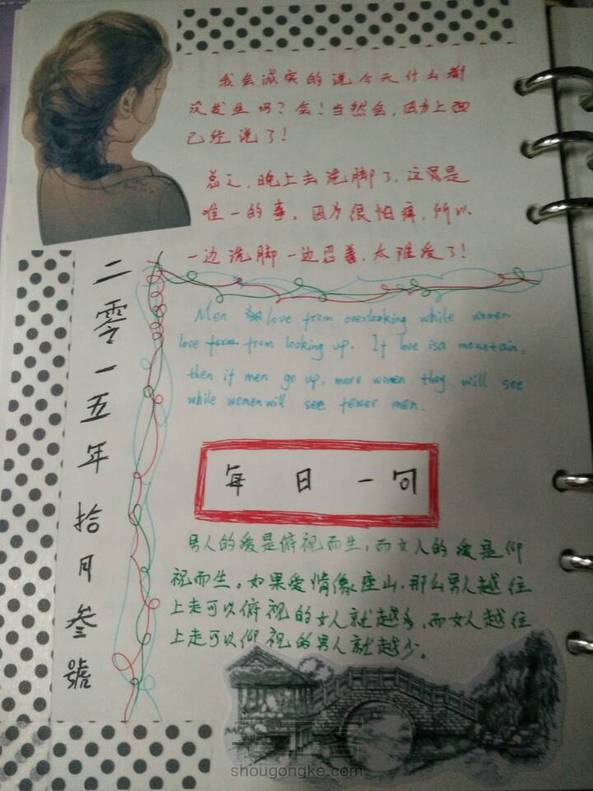 我会诚实的说今天什么都
没发生吗？会！当然会，因为上面
已经说了！
总之，晚上去洗脚了，这算是
唯一的事，因为很怕痒，所以
一边洗脚一边忍着，太难受了！
二零一五年 拾月叁號
Men love from overlooking while women
love from from looking up. If love isa mountain,
then if men go up, more women they will see
while women will see fewer men.
每日一句
男人的爱是俯视而生，而女人的爱是仰
视而生。如果爱情像座山，那么男人越往
上走可以俯视的女人就越多，而女人越往
上走可以仰视的男人就越少。
shougongke.com